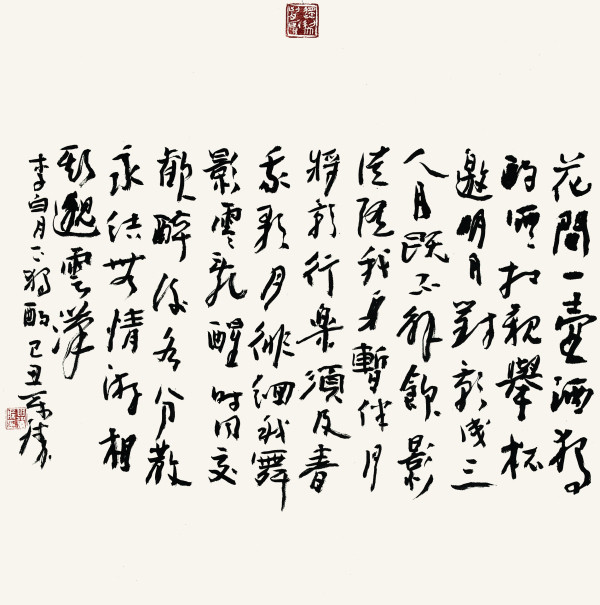 花間一壺酒獨
酌無相親舉杯
邀明月對影成三
人月既不解飲影
徒隨我身暫伴月
將影行樂須及春
我歌月徘徊我舞
影零亂醒時同交
歡醉後各分散
永結無情游相
期邈雲漢
李白月下獨酌己丑